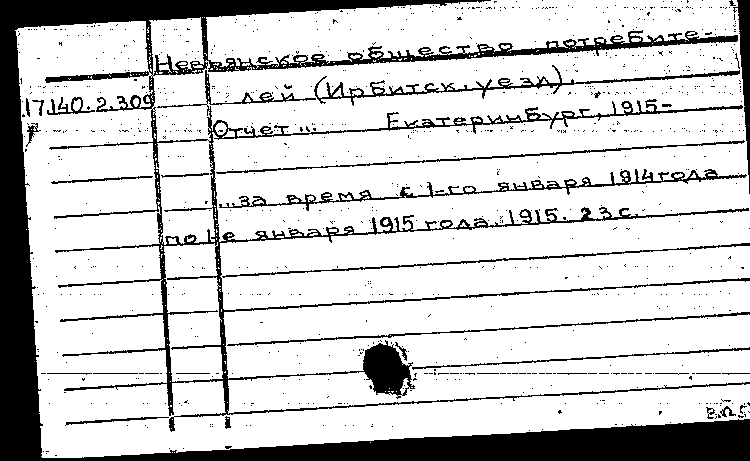 Невьянское общество потребите-
17.140.2.309 лей (Ирбитск. уезд).
Отчет... Екатеринбург, 1915-
...за время с 1-го января 1914 года
по 1-е января 1915 года. 1915. 23 с.